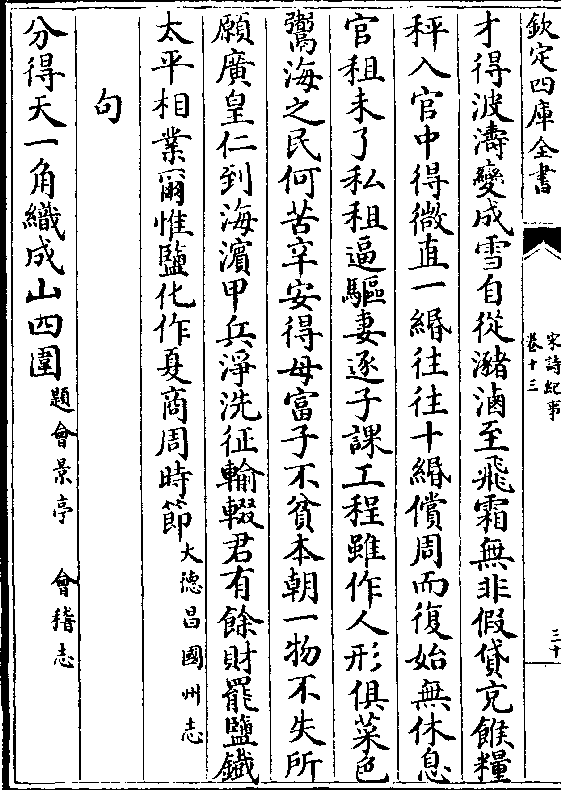 欽定四庫全書
宋詩紀事
卷十三
三十
才得波濤變成雪自從瀦滷至飛霜無非假貸充餱糧
秤入官中得微直一緡往往十緡償周而復始無休息
官租未了私租逼驅妻逐子課工程雖作人形俱菜色
鬻海之民何苦辛安得母富子不貧本朝一物不失所
願廣皇仁到海濱甲兵淨洗征輸輟君有餘財罷鹽鐵
太平相業爾惟鹽化作夏商周時節大德昌國州志
句
分得天一角織成山四圍題會景亭 會稽志